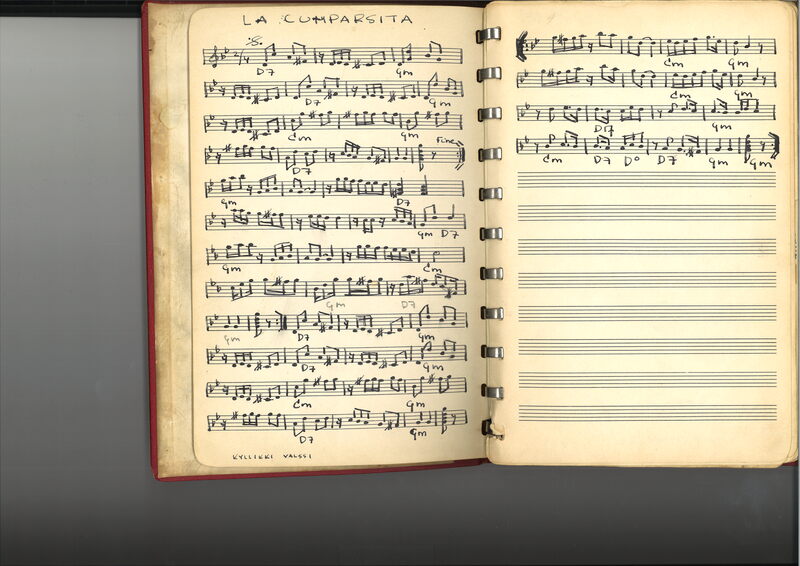 LA CUMPARSITA
2/4
D7 Gm
D7 Gm
Cm Gm
Fine
D7
Gm D7
Gm D7
Gm Cm
Gm D7
Gm D7 Gm
D7 Gm
Cm Gm
D7 Gm
KYLLIKKI VALSSI
Cm Gm
Cm Gm
D7 Gm
Cm D7 D° D7 Gm Gm